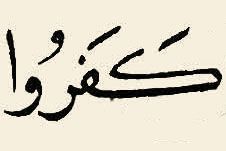 كَفَرُوا